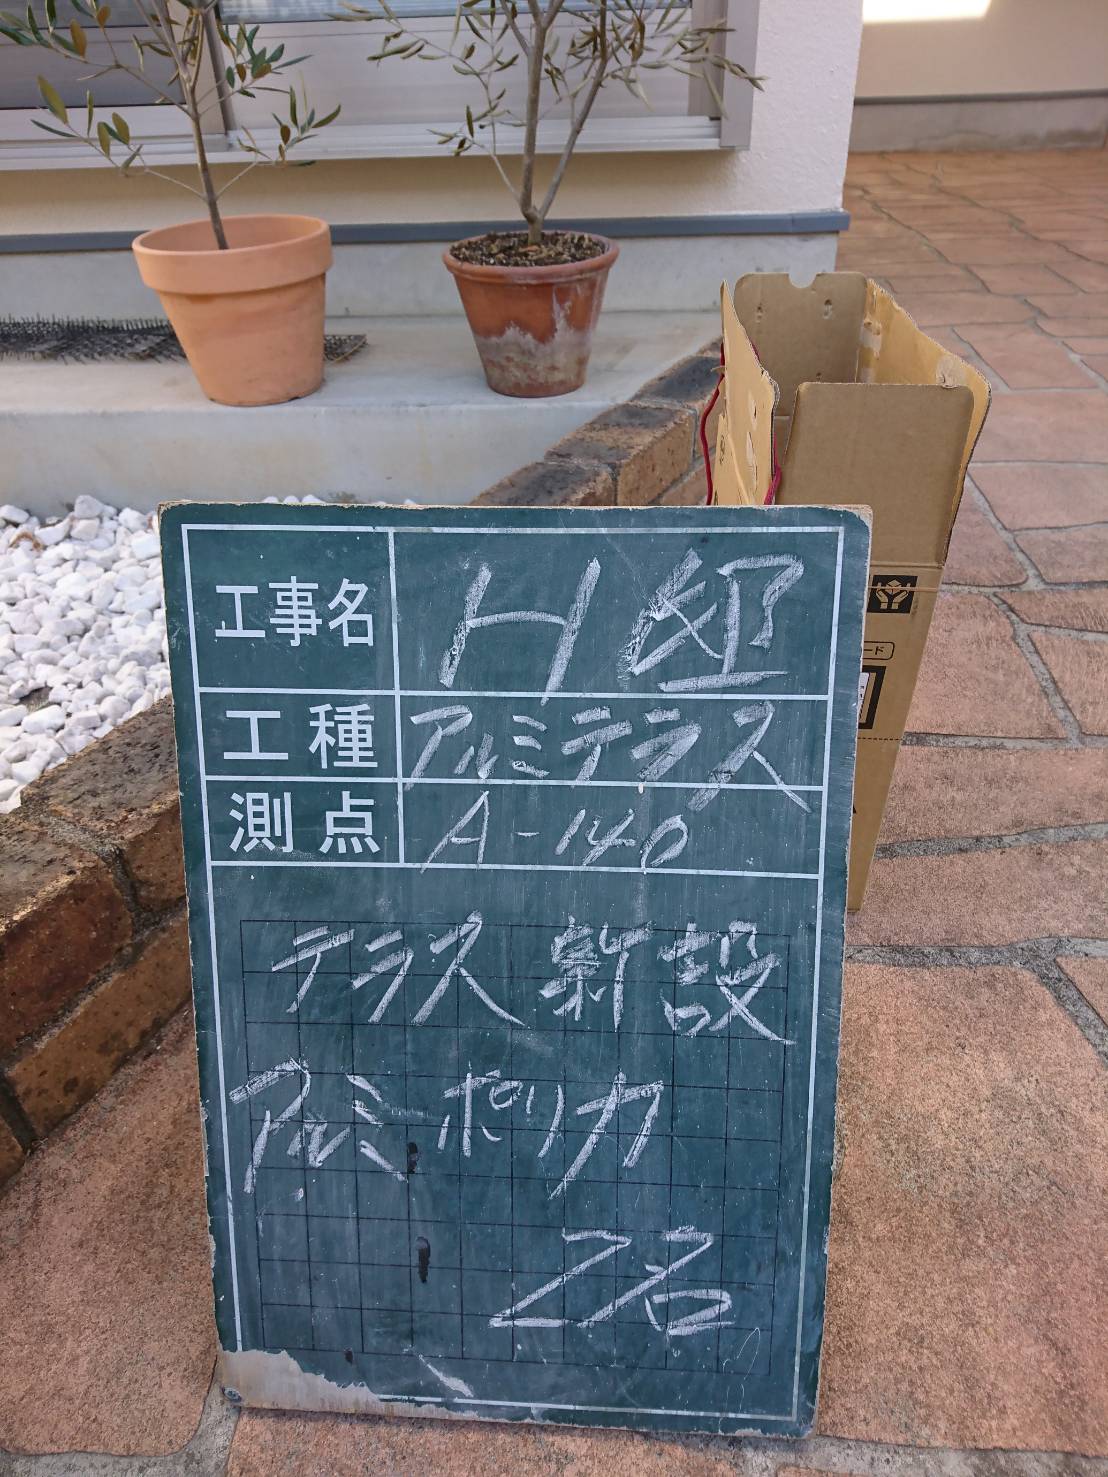 工事名 H邸
工種 アルミテラス
測点 A-140
テラス 新設
アルミ ポリカ
2名